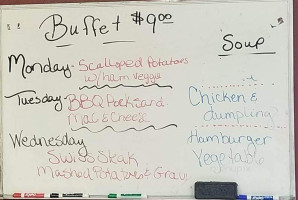 Buffet $9.00
Soup
Monday - Scalloped Potatoes
w/ham veggie
Tuesday - BBQ Pork sand
Mac & Cheese
Wednesday
Swiss Steak
Mashed Potatoes & Gravy
Chicken &
dumpling
Hamburger
Vegetable